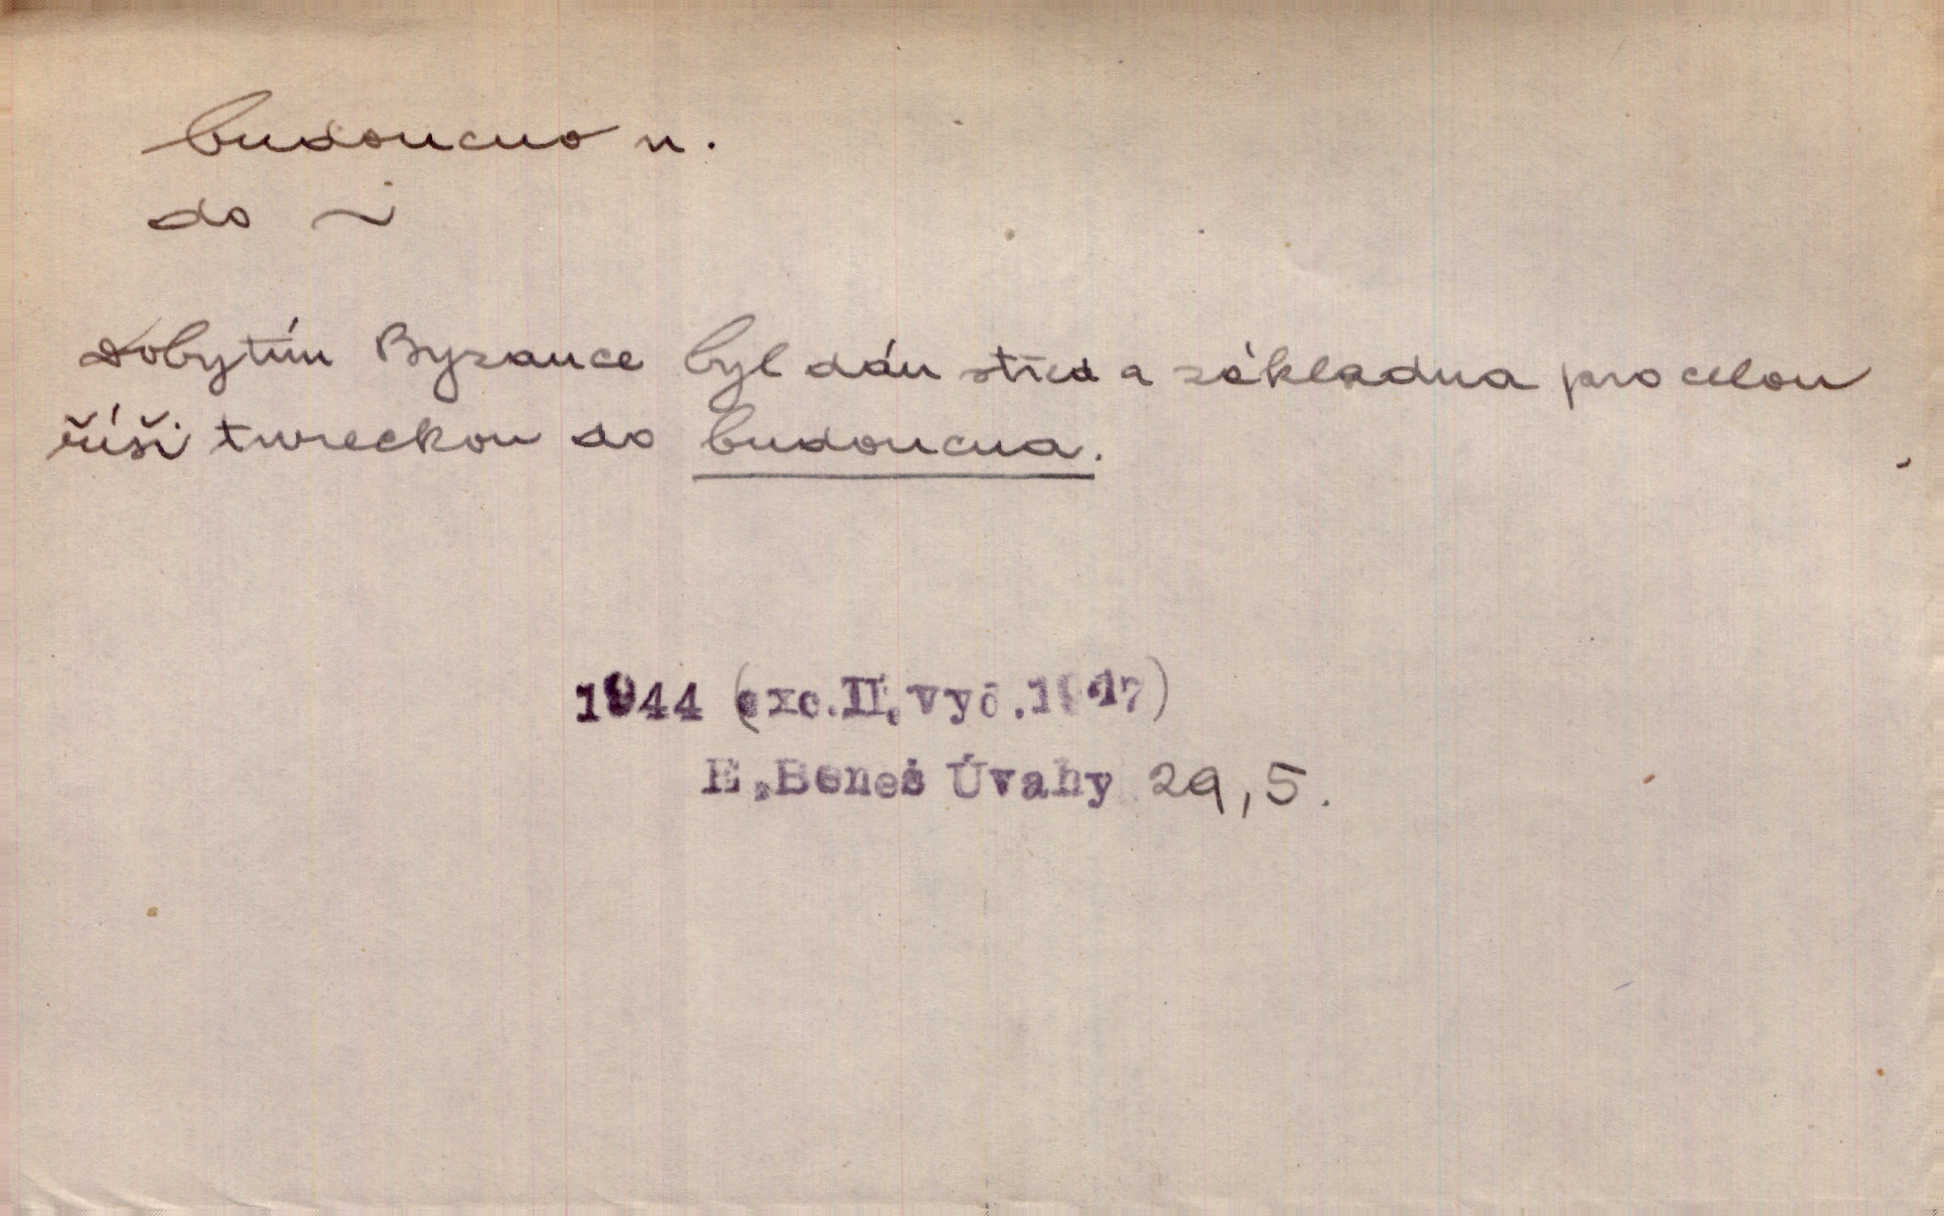 budoucno n.
do ~
Dobytím Byzance byl dán střed a základna pro celou
říši tureckou do budoucna.
1944 (exc. II. vyd. 1947)
E. Beneš Úvahy 29,5.